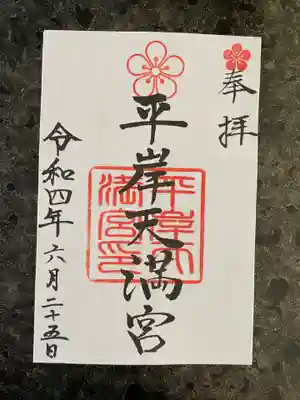 奉拝
平岸天満宮
平岸天満宮印
令和四年六月二十五日